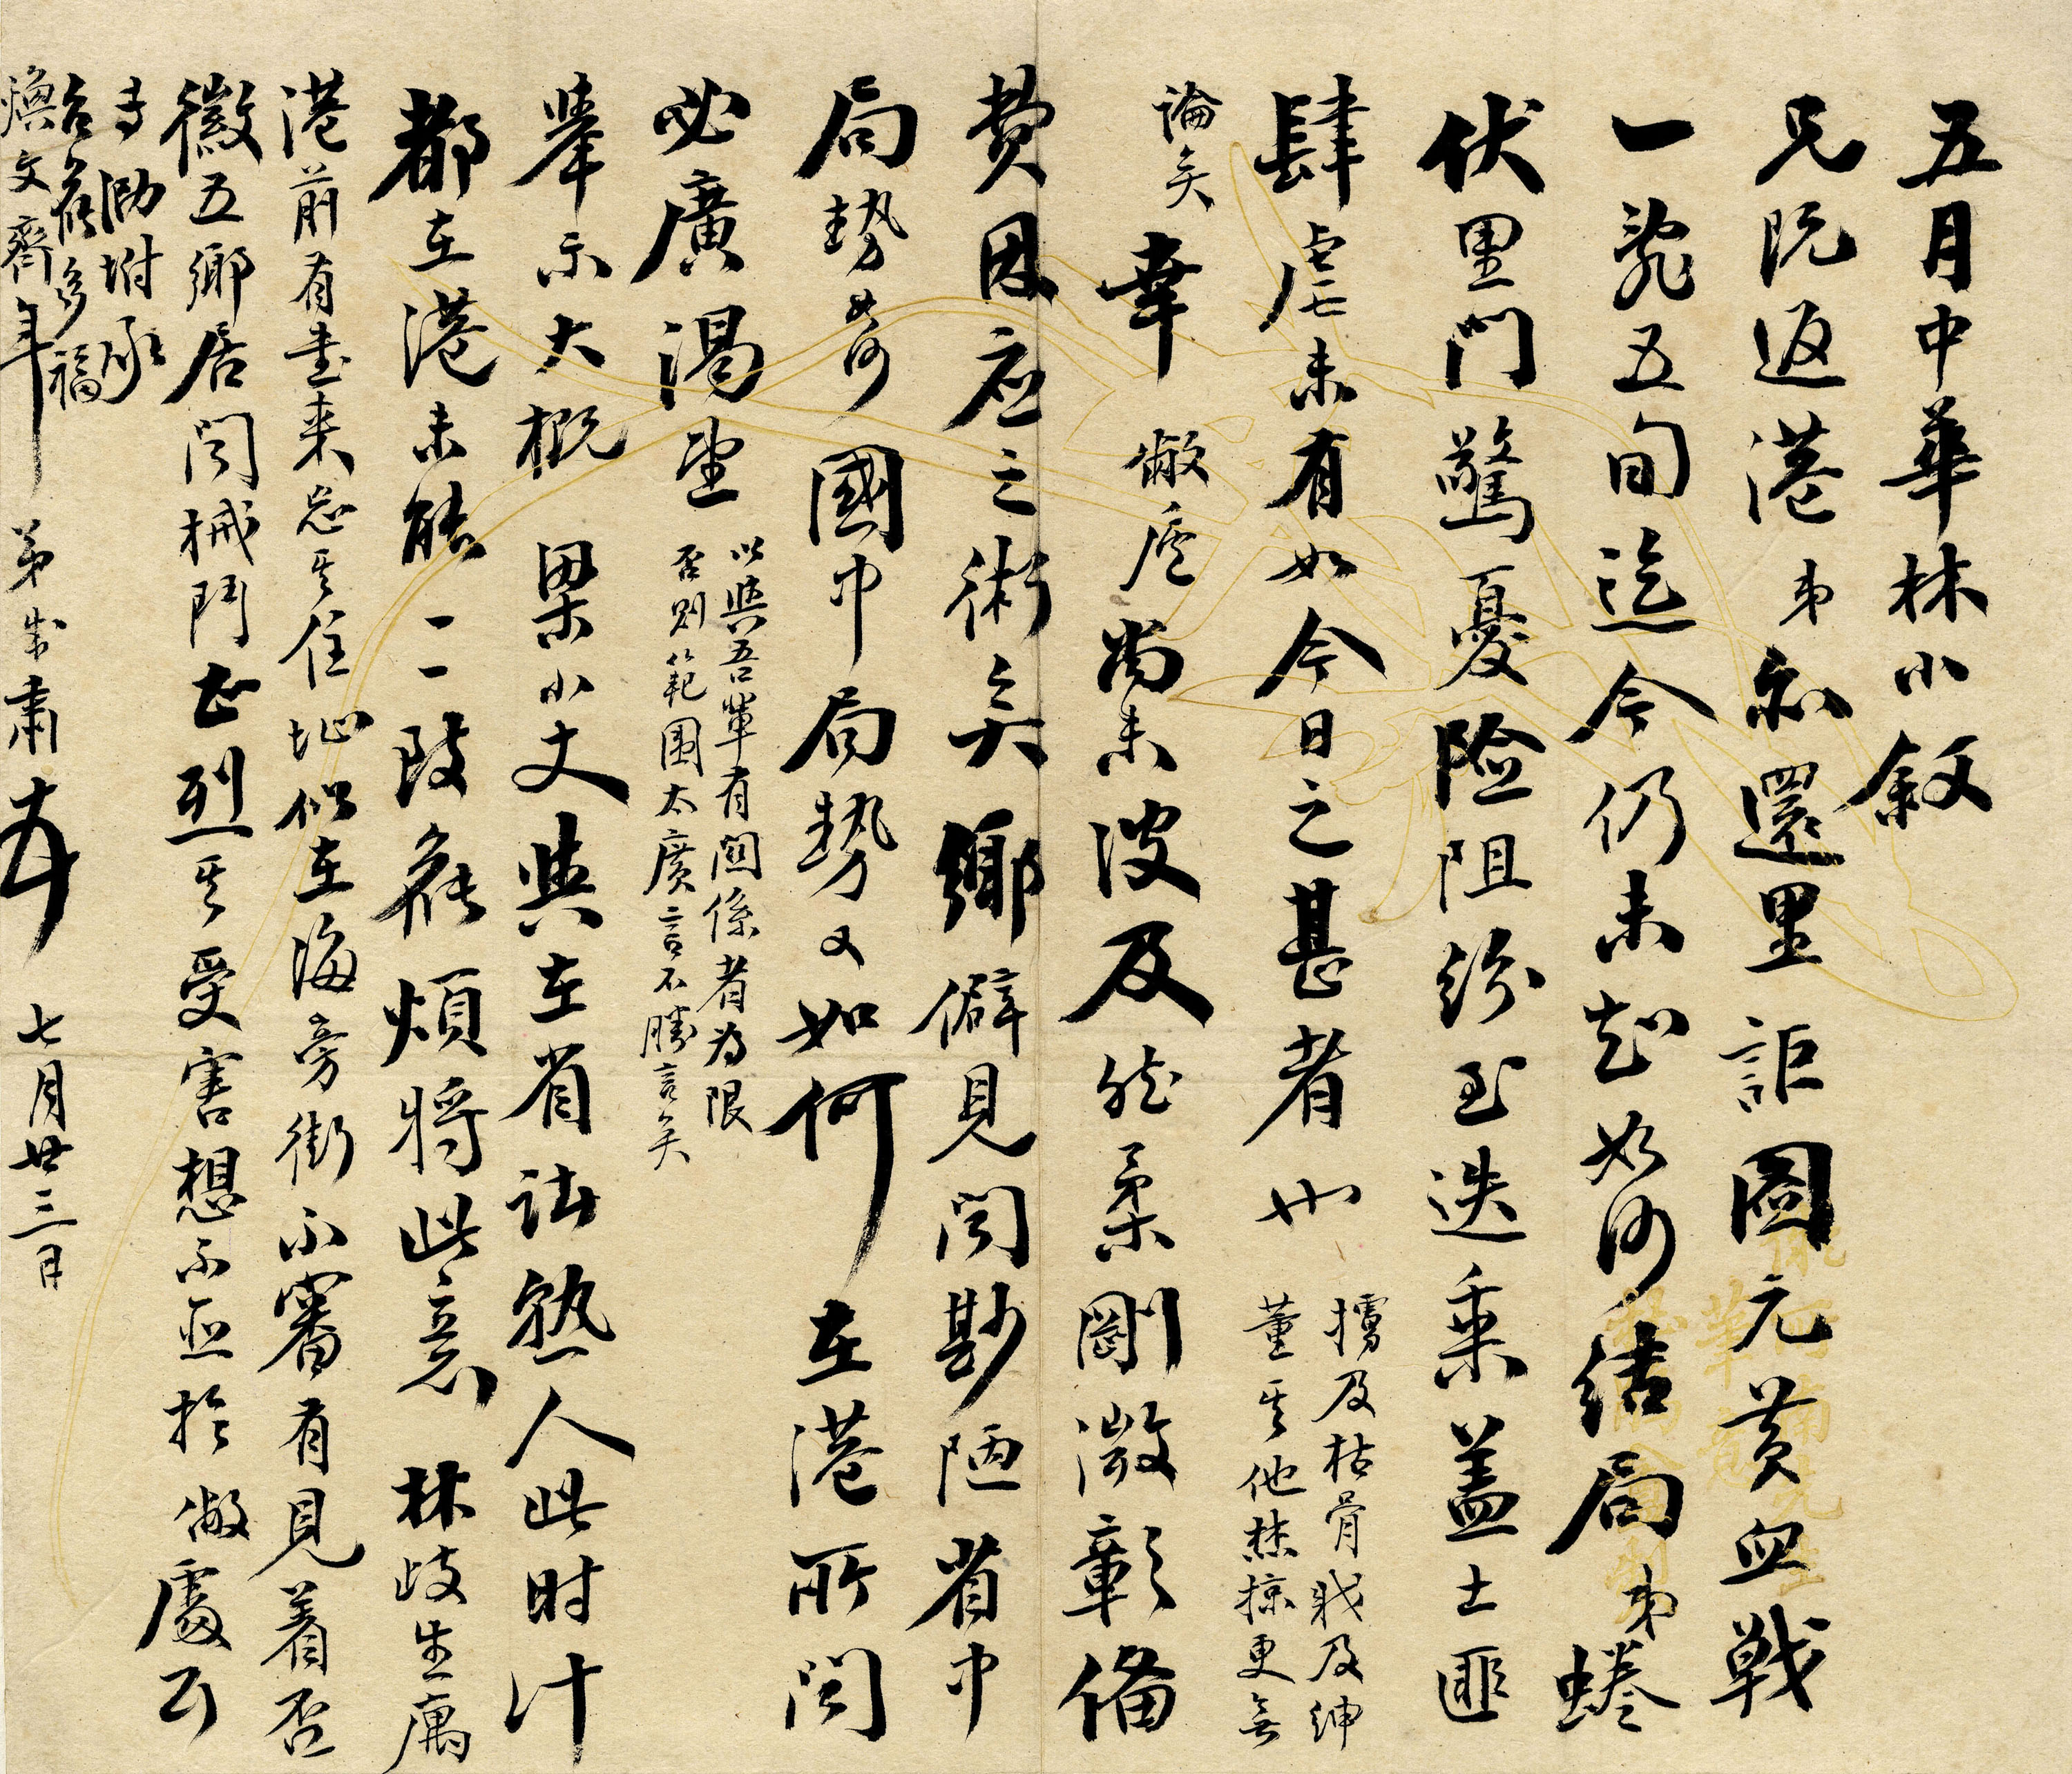 五月中華林小敘
兄既返港弟亦還里詎圖元黃血戰
一亂五旬迄今仍未知如何結局弟蜷
伏里門驚憂險阻紛至迭乘蓋土匪
肆虐未有如今日之甚者也
擄及枯骨戕及紳
董其他焚掠更無
論矣
幸敝廬尚未波及然柔剛微彰備
費因應之術矣鄉僻見聞尠陋省中
局勢如何國中局勢又如何在港所聞
必廣渴望
以與吾輩有關係者為限
否則範圍太廣言不勝言矣
舉示大概梁小文與在省諸熟人此时计
都在港未能一一致候煩將此意林歧生寓
港前有書來忘其住址似在海旁街不審有見着否
徽五鄉居聞械鬥甚烈其受害想不亞於敝處云
專泐坿承
台候多福
煥文齊年 弟 肅 七月廿三日